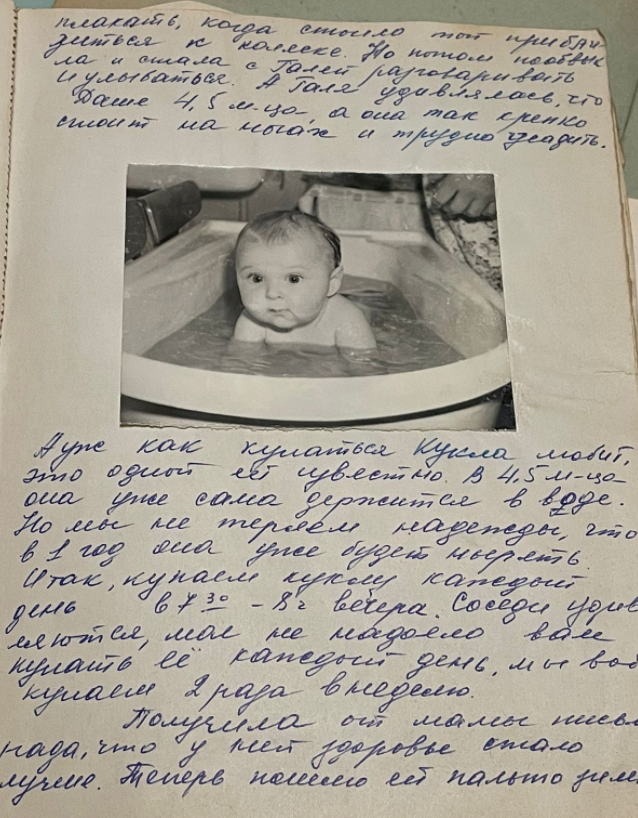 плакать, когда стоило той прибли-
зиться к коляске. Но потом пообвык
ла и стала с Галей разговаривать
и улыбаться. А Галя удивлялась, что
Даше 4,5 м-ца, а она так крепко
стоит на ногах и трудно усадить.
А уж как купаться Кукла любит,
это одной ей известно. В 4,5 м-ца
она уже сама держится в воде.
Но мы не теряем надежды, что
в 1 год она уже будет нырять.
Итак, купаем куклу каждый
день в 7 30 – 8 ч вечера. Соседи удив
ляются, мол не надоело вам
купать её каждый день, мы
купаем 2 раза в неделю.
Получила от мамы
рада, что у ней здоровье стало
лучше. Теперь пошлю ей пальто